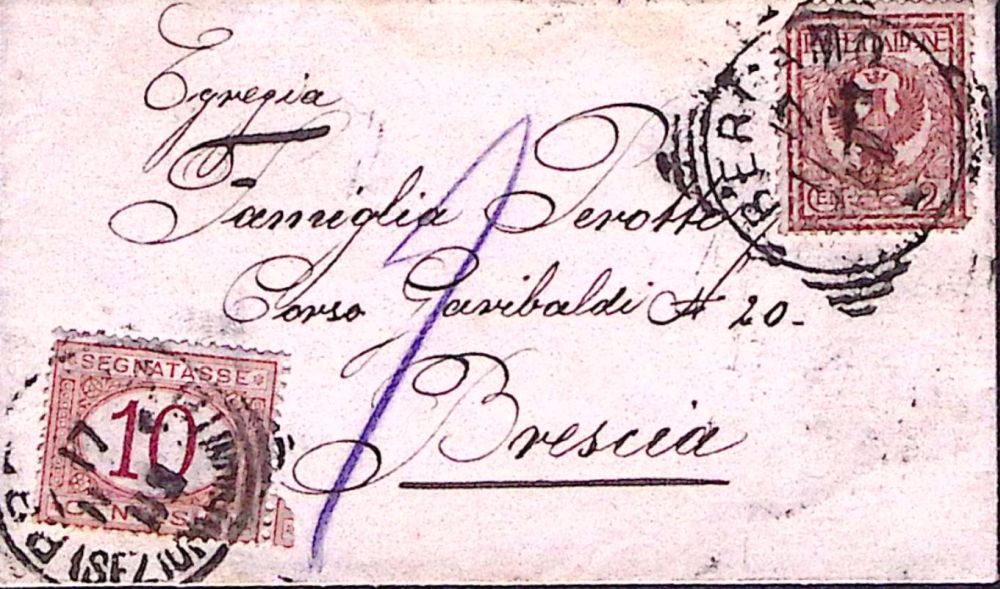 Egregia
Famiglia Perotti
Corso Garibaldi № 20-
Brescia
POSTE ITALIANE
CENT. 2
SEGNATASSE
10
17